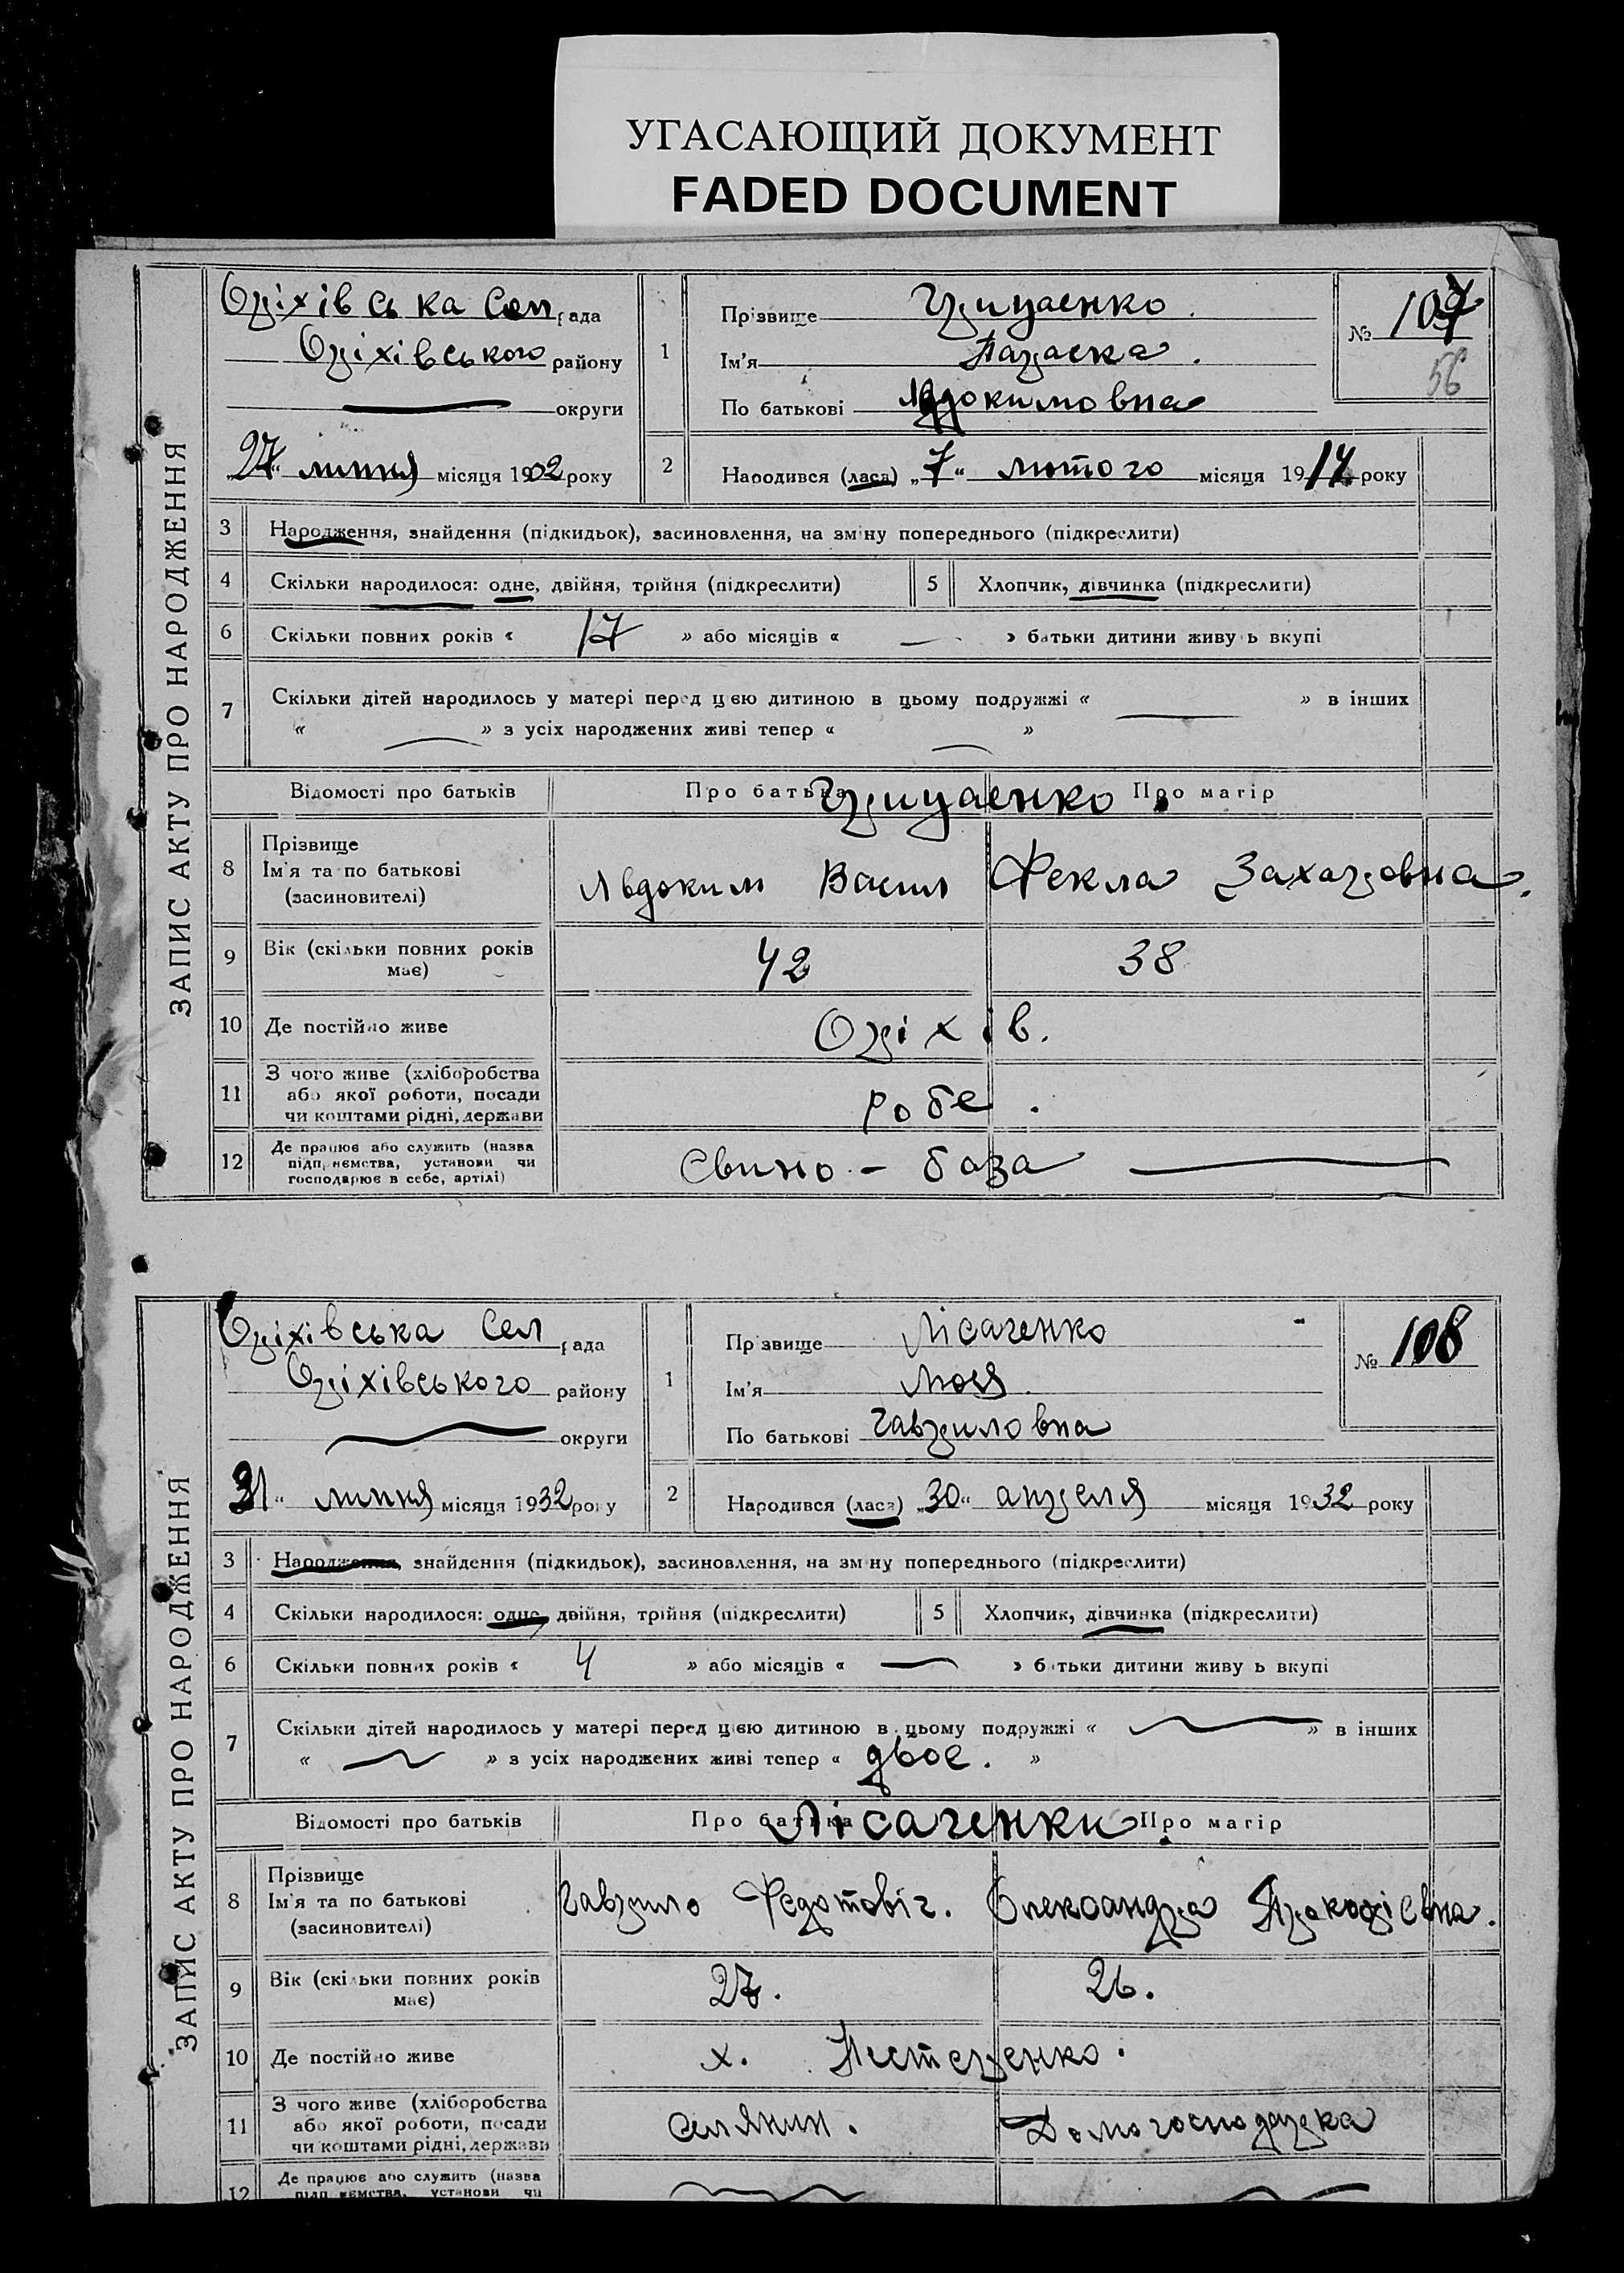 УГАСАЮЩИЙ ДОКУМЕНТ
FADED DOCUMENT
ЗАПИС АКТУ ПРО НАРОДЖЕННЯ
Оріхівська Сел рада
Оріхівського району
округи
„27“ липня місяця 1902 року
1
Прізвище Грицаенко.
Ім'я Параска.
По батькові Явдокимовна
№ 107
56
2
Народився (лася) „7“ лютого місяця 1914 року
3 Народження, знайдення (підкидьок), засиновлення, на зміну попереднього (підкреслити)
4 Скільки народилося: одне, двійня, трійня (підкреслити) 5 Хлопчик, дівчинка (підкреслити)
6 Скільки повних років « 17 » або місяців « — » батьки дитини живуть вкупі
7 Скільки дітей народилось у матері перед цією дитиною в цьому подружжі « — » в інших
« — » з усіх народжених живі тепер « — »
Відомості про батьків Про батька Про матір
Грицаенко
8 Прізвище
Ім'я та по батькові
(засиновителі)
Явдоким Васил Фекла Захаровна.
9 Вік (скільки повних років
має)
42 38
10 Де постійно живе Оріхів.
11 З чого живе (хліборобства
або якої роботи, посади
чи коштами рідні, держави
робе.
12 Де працює або служить (назва
підприємства, установи чи
господарює в себе, артілі)
Свино - база —
ЗАПИС АКТУ ПРО НАРОДЖЕННЯ
Оріхівська Сел рада
Оріхівського району
округи
31“ липня місяця 1932 року
1
Прізвище Лісаченко
Ім'я Люся
По батькові Гаврыловна
№ 108
2
Народився (лася) „30“ апреля місяця 1932 року
3 Народження, знайдення (підкидьок), засиновлення, на зміну попереднього (підкреслити)
4 Скільки народилося: одне, двійня, трійня (підкреслити) 5 Хлопчик, дівчинка (підкреслити)
6 Скільки повних років « 4 » або місяців « — » батьки дитини живуть вкупі
7 Скільки дітей народилось у матері перед цією дитиною в цьому подружжі « — » в інших
« — » з усіх народжених живі тепер « двое. »
Відомості про батьків Про батька Про матір
Лісаченки
8 Прізвище
Ім'я та по батькові
(засиновителі)
Гаврило Федотовіч. Олександра Прокофіевна.
9 Вік (скільки повних років
має)
27. 26.
10 Де постійно живе х. Нестеренко.
11 З чого живе (хліборобства
або якої роботи, посади
чи коштами рідні, держави
Селянин. Домогосподарка
12 Де працює або служить (назва
підприємства, установи чи